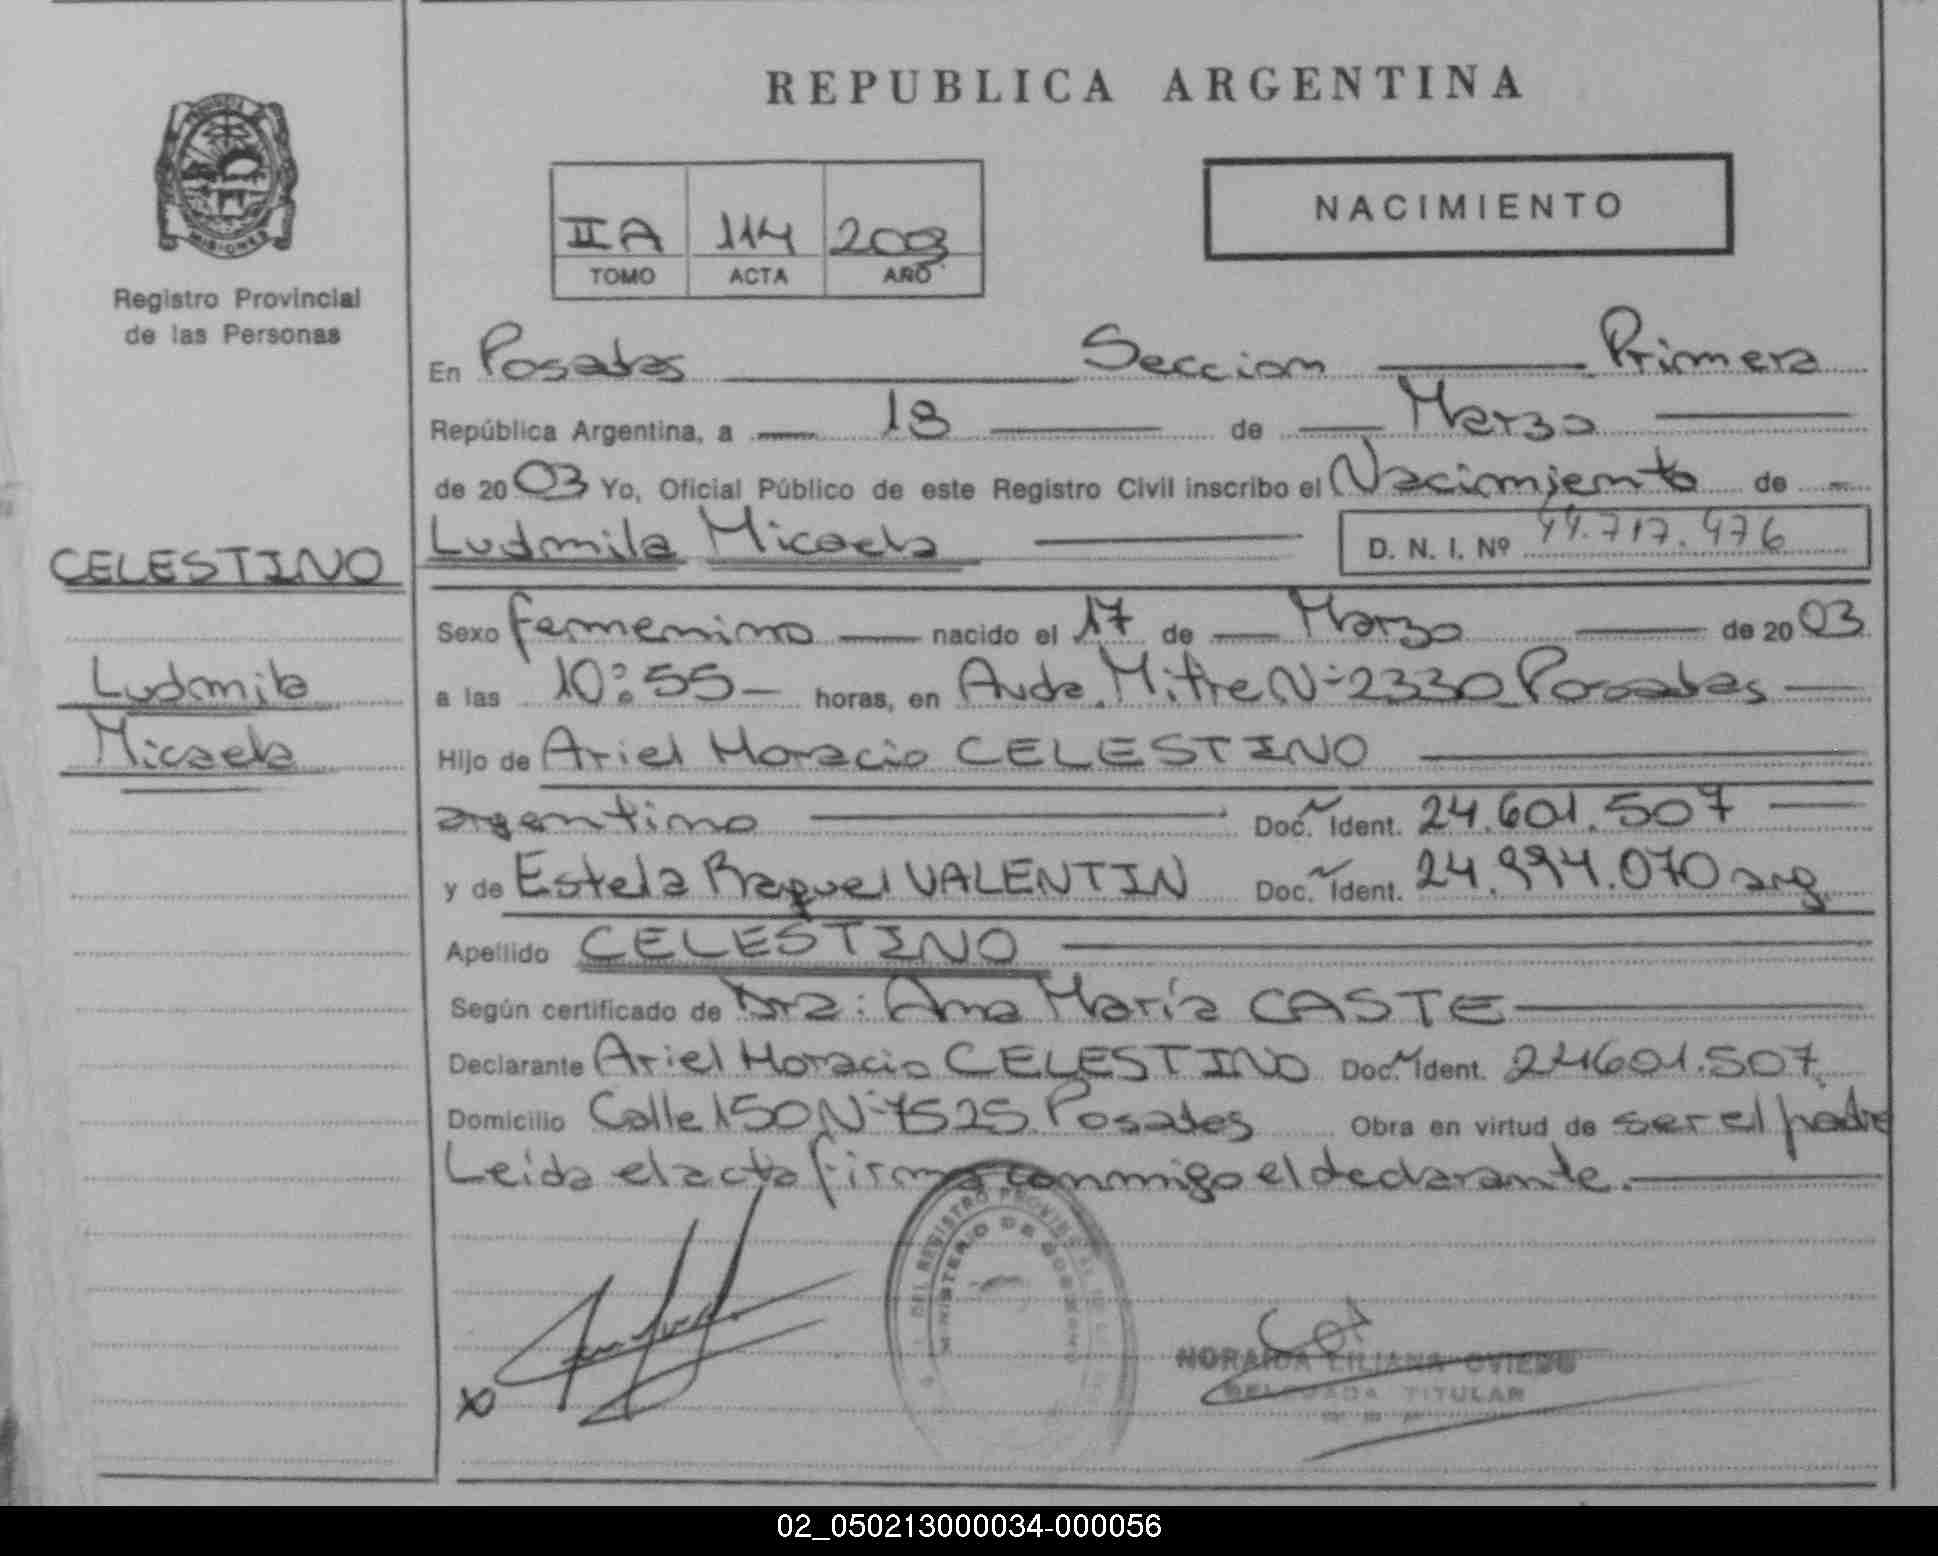 REPUBLICA ARGENTINA
PROVINCIA
MISIONES
Registro Provincial
de las Personas
IIA 114 2003
TOMO ACTA AÑO
NACIMIENTO
En Posadas Seccion Primera
República Argentina, a 18 de Marzo
de 2003 Yo, Oficial Público de este Registro Civil inscribo el Nacimiento de
CELESTINO
Ludmila
Micaela
Ludmila Micaela D. N. I. Nº 44.717.476
Sexo femenino nacido el 17 de Marzo de 2003
a las 10:55 horas, en Avda. Mitre Nº 2330 Posadas
Hijo de Ariel Horacio CELESTINO
argentino Doc. Ident. 24.601.507
y de Estela Raquel VALENTIN Doc. Ident. 24.994.070 arg.
Apellido CELESTINO
Según certificado de Dra: Ana María CASTE
Declarante Ariel Horacio CELESTINO Doc. Ident. 24601.507
Domicilio Calle 150 Nº 7525 Posadas Obra en virtud de ser el padre
Leida el acta firma conmigo el declarante.
DEL REGISTRO PROVINCIAL DE
MINISTERIO DE GOBIERNO
LILIANA OVIEDO
DELEGADA TITULAR
02_050213000034-000056